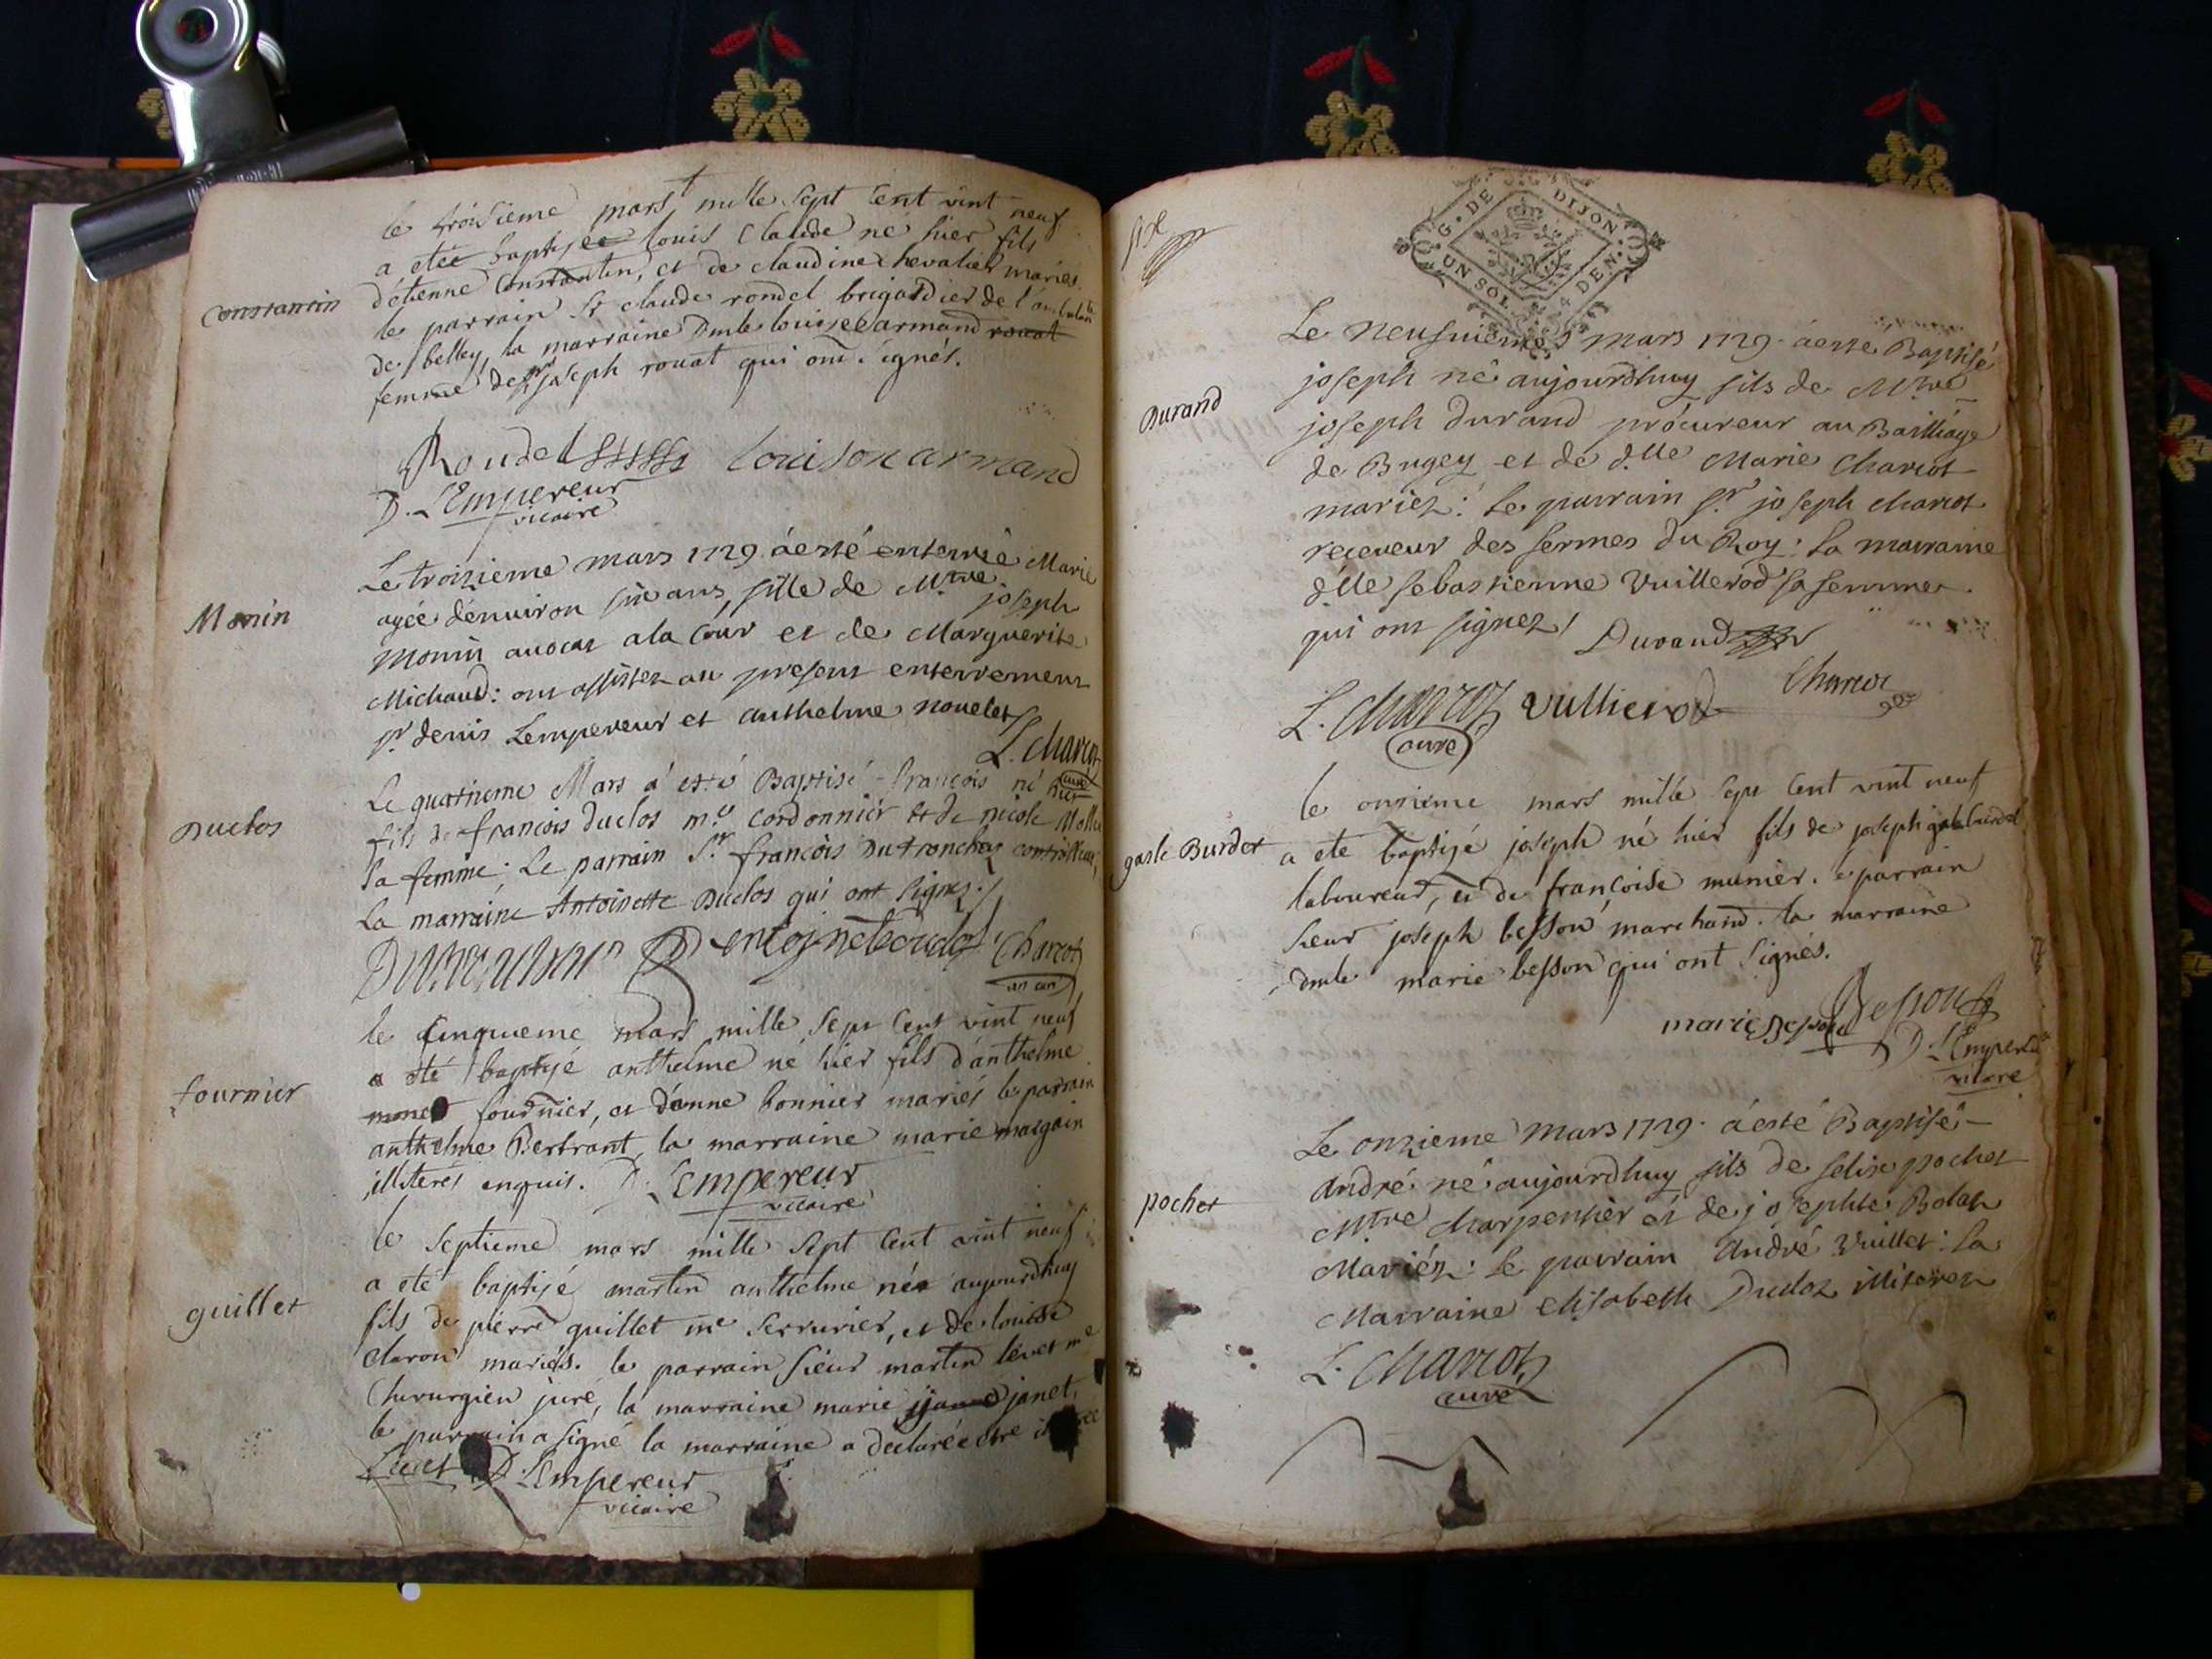 le troisieme mars mille sept cent vint neuf
a etée baptisee louis claude né hier fils
constantin
d'étienne Constantin, et de claudine chevalier mariés.
le parrain Sr claude rondel brigadier de
de belley, la marraine Dmle louise armand rouat
femme de Sr joseph rouat qui ont signés.
Roudel louison armand
D. L'Empereur
vicaire
Le troizieme mars 1729. a esté enterrée Marie
agée denuiron six ans, fille de Mtre joseph
Monin
monin auocat a la Cour et de Marguerite
Michaud: ont assistez au present enterrement
sr denis Lempereur et anthelme nouelet
L. charcot
curé
Le quatrieme Mars a esté Baptisé françois né hier
Duclos
fils de françois duclos me Cordonnier et de nicole
sa femme; Le parrain Sr françois Dutronchay
La marraine Antoinette Duclos qui ont signés.
Charcot
le cinquieme mars mille sept cent vint neuf
a été baptisé anthelme né hier fils d'anthelme
fournier
fournier, et d'anne bonnier mariés le parrain
anthelme Bertrant, la marraine marie margain
illiterés enquis. D. L'Empereur
vicaire
le septieme mars mille sept cent vint neuf
a eté baptisé martin anthelme née aujourdhuy
guillet
fils de pierre guillet me serrurier, et de louise
claron mariés. le parrain sieur martin levet me
Chirurgien juré, la marraine marie janet,
le parrain a signé la marraine a declaré etre
Levet D. L'Empereur
vicaire
sixe
G. DE DIJON
UN SOL 4 DEN.
Le neufuieme mars 1729. a esté Baptisé
joseph né aujourdhuy fils de Mtre
Durand
joseph durand procureur au Bailliage
de Bugey et de dlle Marie Charcot
mariez: Le parrain sr joseph charcot
receveur des fermes du Roy: la marraine
dlle sebastienne Vuillerod sa femme
qui ont signez/ Durand
L. Charcot Vullierod Charcot
curé
le onzieme mars mille sept cent vint neuf
gaste Burdet
a eté baptisé joseph né hier fils de joseph gasteburdet
laboureur, et de françoise munier. le parrain
sieur joseph besson marchand. la marraine
dmle marie besson qui ont signés.
marie Besson Besson
D. L'Empereur
vicaire
Le onzieme mars 1729. a esté Baptisé
André né aujourdhuy fils de felix pochet
pochet
Mtre charpentier et de josephte Bolat
Mariéz: le parrain André Vuillet: la
Marraine elisabeth Ducloz illiterez
L. Charcot
curé